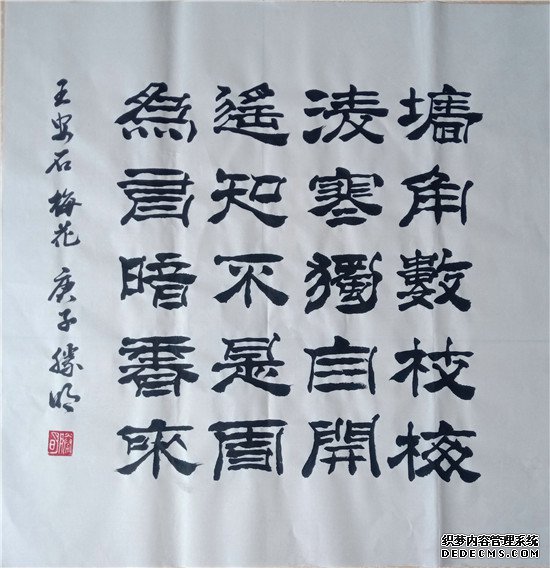 墻角數枝梅
淩寒獨自開
遥知不是雪
為有暗香來
王安石梅花 庚子勝明
织梦内容管理系统
DEDECMS.COM